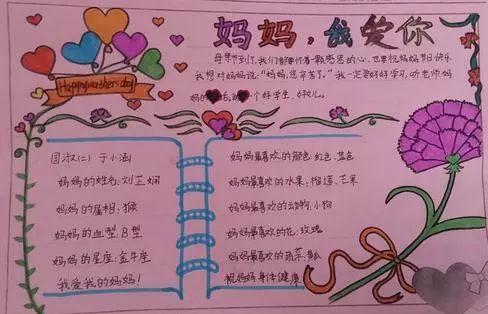 妈妈,我爱你
Happymothersday
母亲节到了,我们都怀着一颗感恩的心,也要祝妈妈节日快乐
我想对妈妈说:"妈妈,您辛苦了。"我一定要好好学习,听老师妈
妈的话,做个好学生、好女儿。
国淑(二) 于小涵
妈妈的姓名:刘芷娴
妈妈的属相:猴
妈妈的血型:B型
妈妈的星座:金牛座
我爱我的妈妈!
妈妈最喜欢的颜色:红色、蓝色
妈妈最喜欢的水果:榴莲、芒果
妈妈最喜欢的动物:小狗
妈妈最喜欢的花:玫瑰
妈妈最喜欢的蔬菜:黄瓜
祝妈妈身体健康